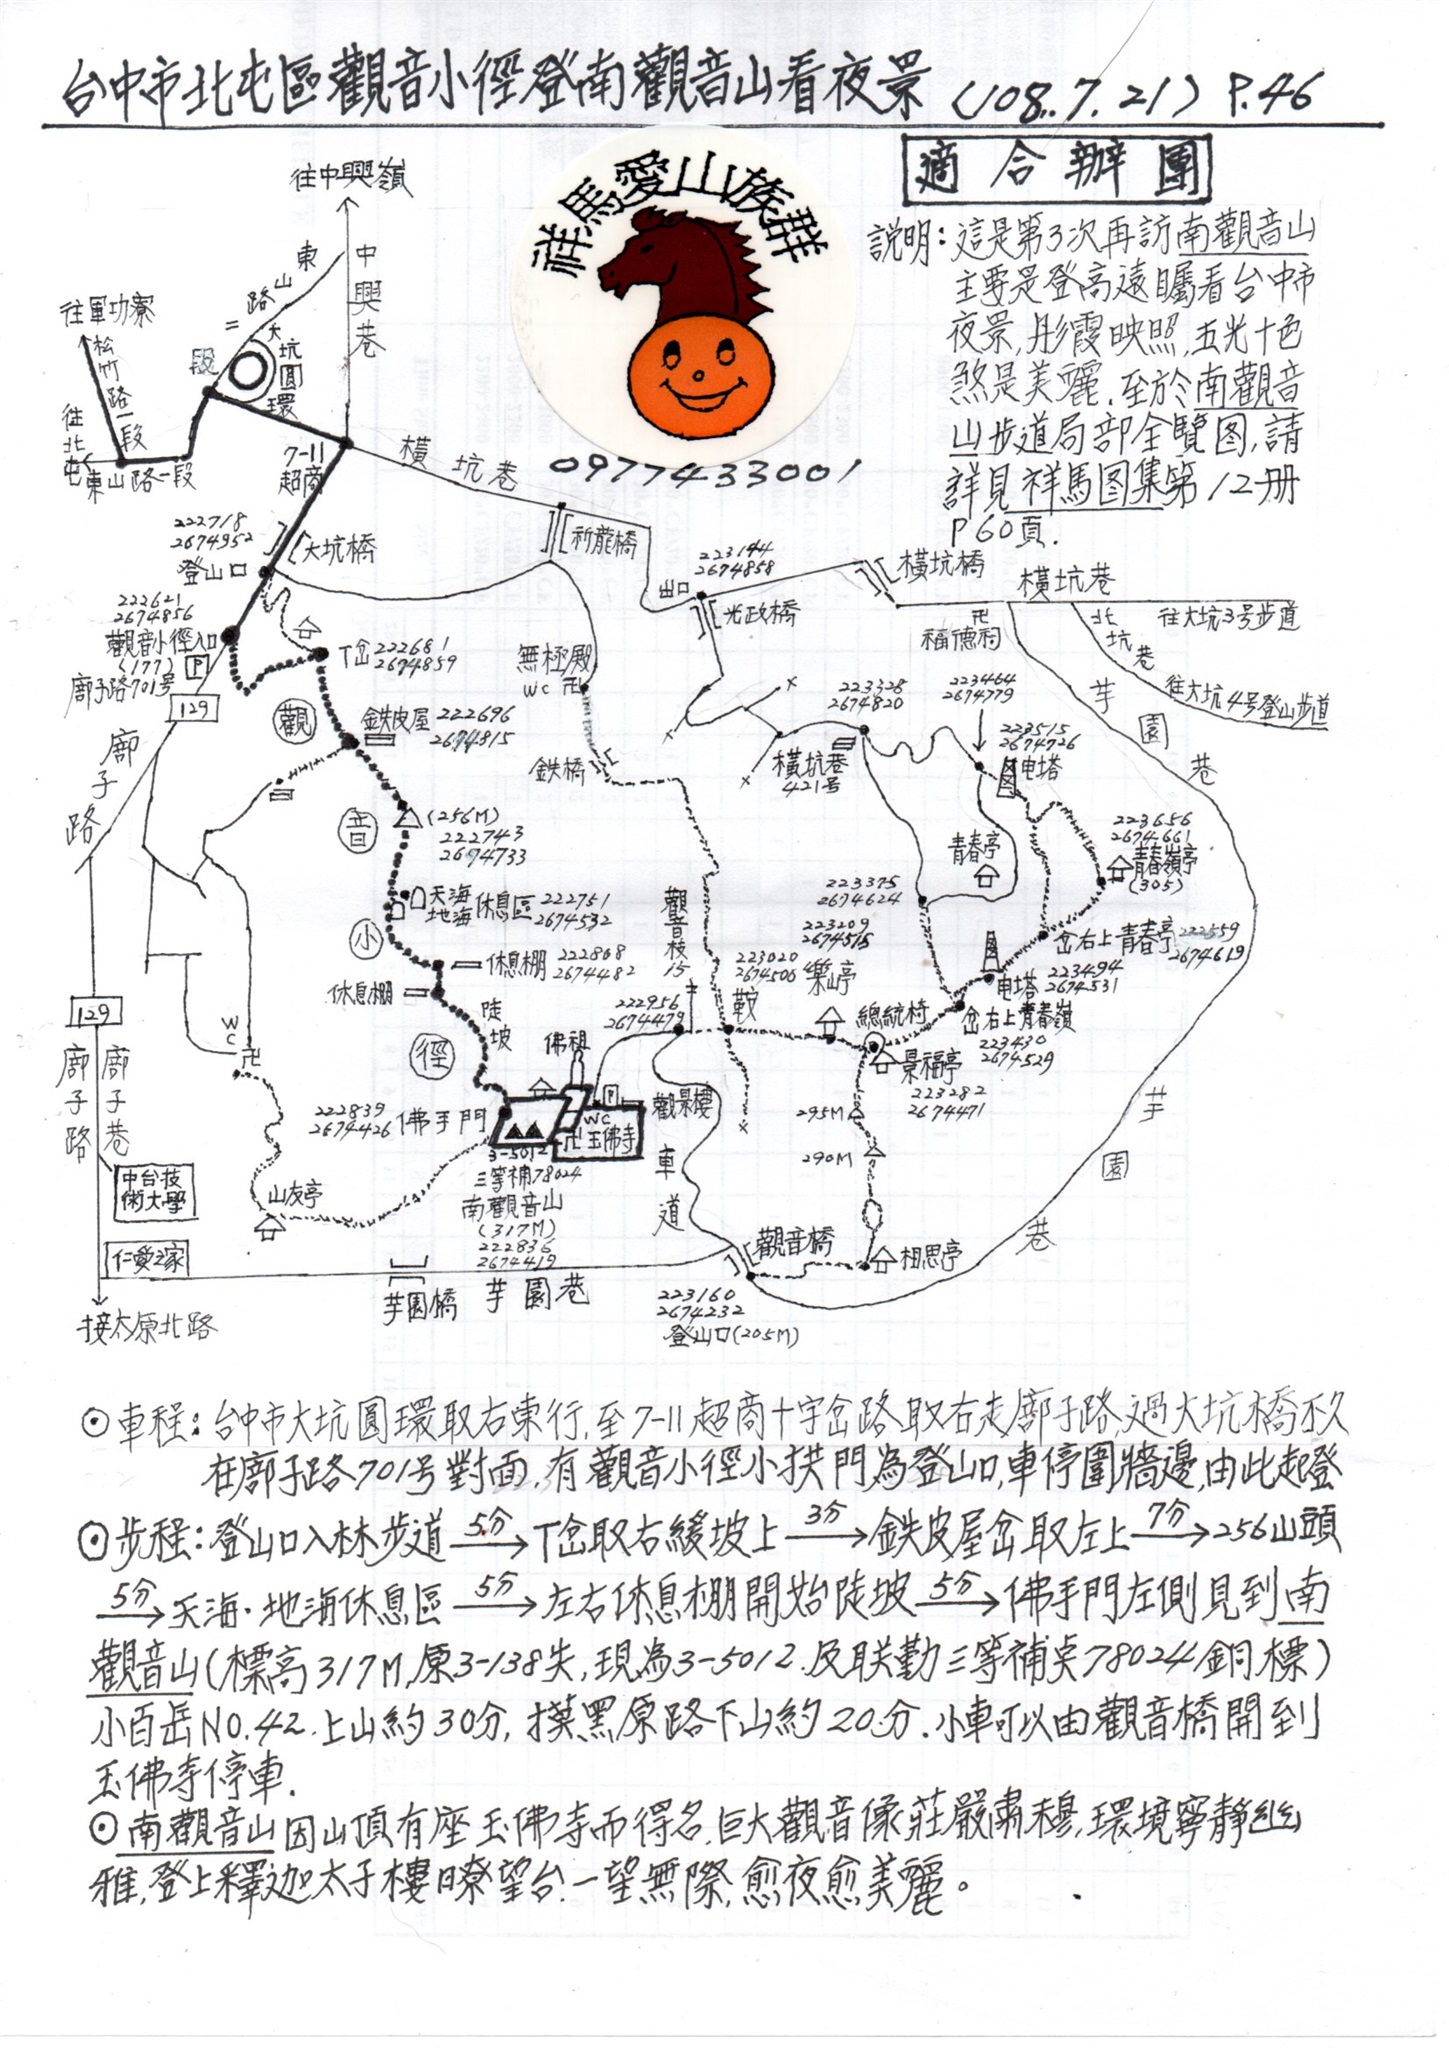 台中市北屯區觀音小徑登南觀音山看夜景 (108.7.21) P.46
適合辦團
祥馬愛山族群
0977433001
說明:這是第3次再訪南觀音山
主要是登高遠矚看台中市
夜景,彤霞映照,五光十色
煞是美麗.至於南觀音
山步道局部全覽图,請
詳見祥馬图集第12冊
P60頁.
往中興嶺
中興巷
東山路二段
大坑圓環
往軍功寮
松竹路一段
往北屯
東山路一段
7-11
超商
橫坑巷
222718
2674952
登山口
大坑橋
祈龍橋
223144
2674858
出口
光政橋
橫坑橋
橫坑巷
往大坑3号步道
福德祠
北坑巷
往大坑4号登山步道
222621
2674856
觀音小徑入口
(177)
P
廍子路701号
129
T岔 222681
2674859
無極殿
WC 卍
223328
2674820
223464
2674779
芋園巷
觀
鉄皮屋 222696
2674815
鉄橋
橫坑巷
421号
223515
2674726
电塔
廍子路
音
(256M)
222743
2674733
青春亭
223656
2674661
青春嶺亭
(305)
天海
地海
休息區 222751
2674532
觀音枝15
223375
2674624
小
休息棚 222808
2674482
223209
2674515
樂山亭
岔右上青春亭 222559
2674619
休息棚
陡坡
223020
2674506
鞍
电塔 223494
2674531
129
WC
卍
徑
佛祖
222956
2674479
總統椅
岔右上青春嶺
223430
2674529
景福亭
223282
2674471
廍子路
廍子巷
222839
2674426
佛手門
P
WC
卍玉佛寺
觀景樓
295M
290M
芋園巷
中台技
術大學
山友亭
3-5012
三等補78024
南觀音山
(317M)
222836
2674419
車道
觀音橋
相思亭
仁愛之家
芋園橋
芋園巷
223160
2674232
登山口(205M)
接太原北路
⊙車程:台中市大坑圓環取右東行,至7-11超商十字岔路取右走廍子路,過大坑橋不久
在廍子路701号對面,有觀音小徑小拱門為登山口,車停圍牆邊,由此起登
⊙步程:登山口入林步道 5分→ T岔取右緩坡上 3分→ 鉄皮屋岔取左上 7分→ 256山頭
5分→ 天海·地海休息區 5分→ 左右休息棚開始陡坡 5分→ 佛手門左側見到南
觀音山(標高317M,原3-138失,現為3-5012.及联勤三等補点78024銅標)
小百岳NO.42.上山約30分,摸黑原路下山約20分.小車可以由觀音橋開到
玉佛寺停車.
⊙南觀音山因山頂有座玉佛寺而得名,巨大觀音像莊嚴肅穆,環境寧靜幽
雅,登上釋迦太子樓瞭望台.一望無際,愈夜愈美麗。